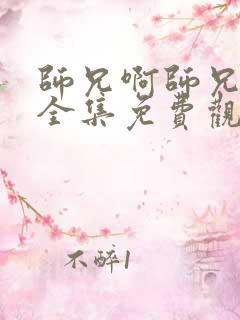 師兄啊師兄
全集免費觀
不醉1